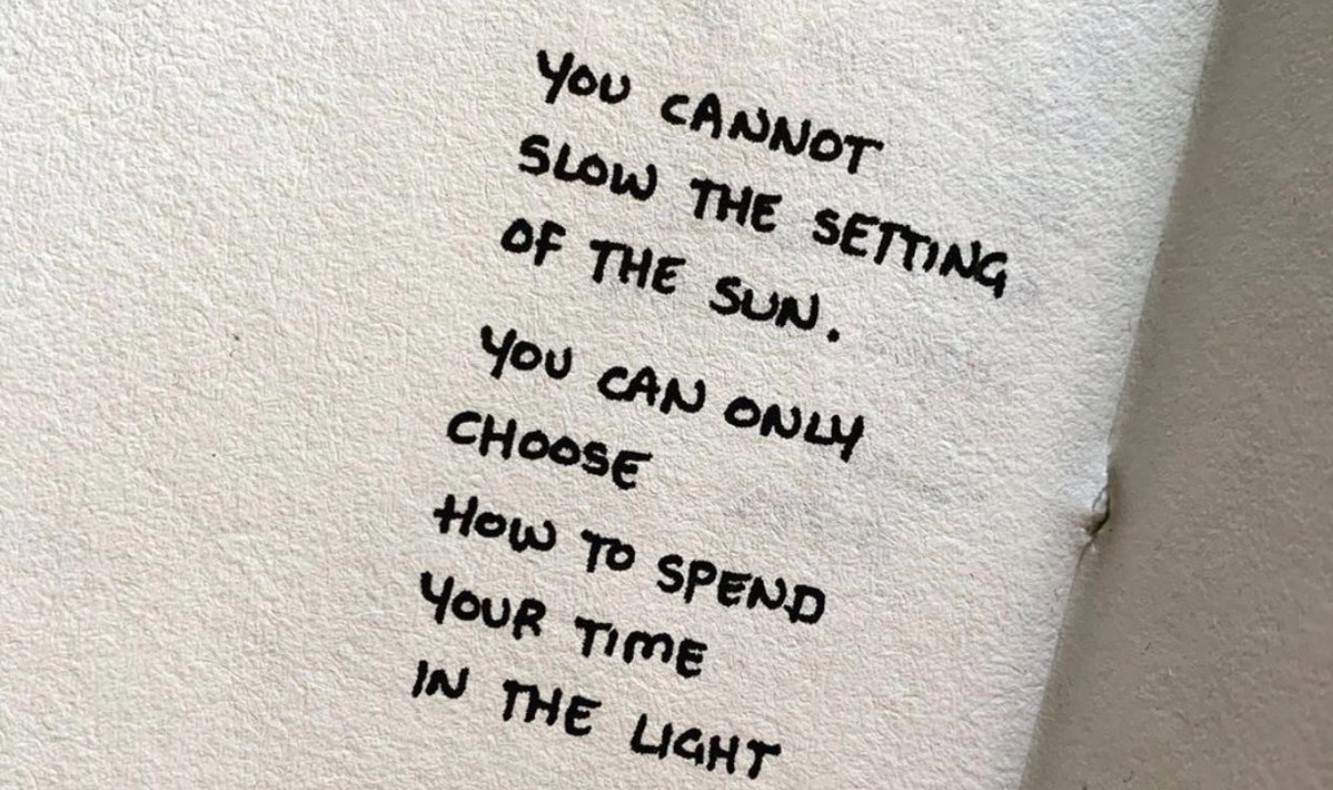 YOU CANNOT
SLOW THE SETTING
OF THE SUN.
YOU CAN ONLY
CHOOSE
HOW TO SPEND
YOUR TIME
IN THE LIGHT